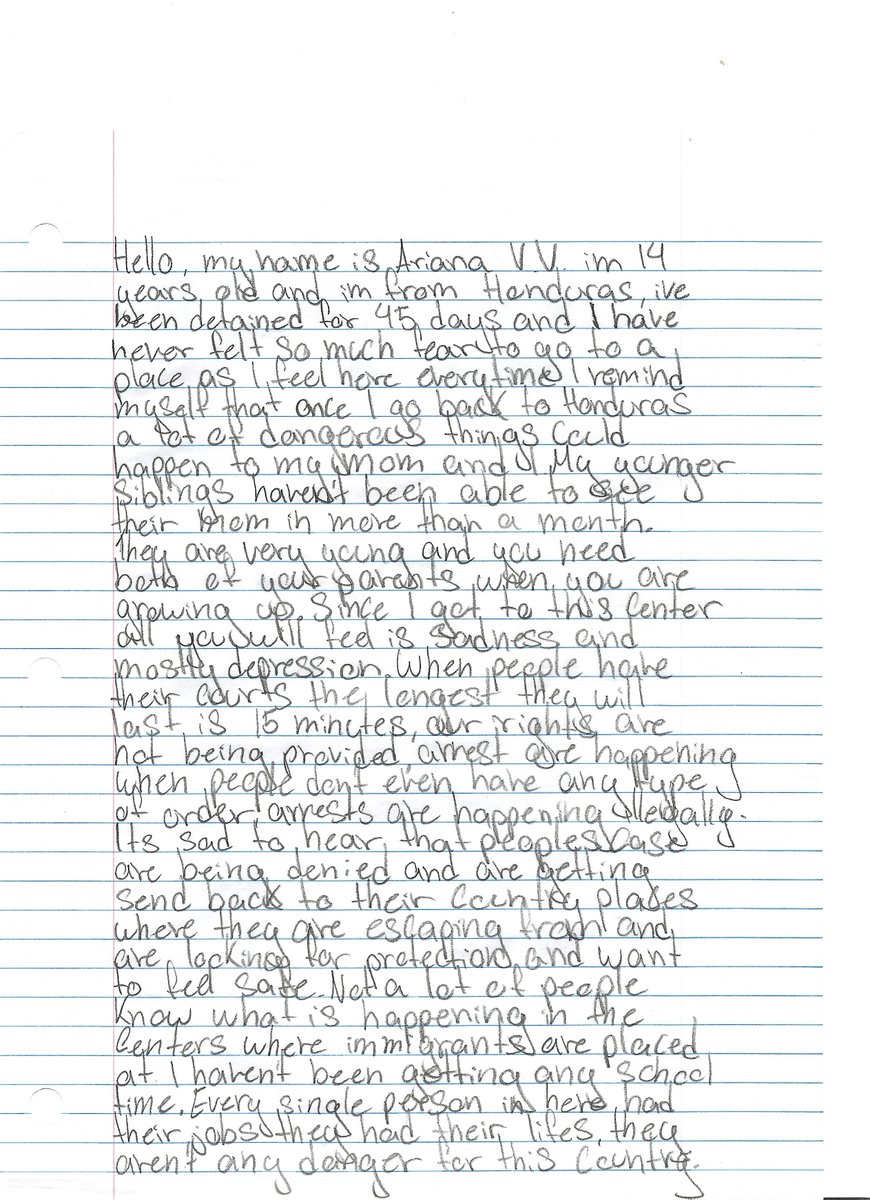 Hello, my name is Ariana V.V. im 14
years old and im from Honduras, ive
been detained for 45 days and I have
never felt so much fear to go to a
place as I feel here everytime I remind
myself that once I go back to Honduras
a lot of dangerous things could
happen to my mom and I. My younger
siblings haven't been able to see
their mom in more than a month.
They are very young and you need
both of your parents when you are
growing up. Since I got to this Center
all you will feel is sadness and
mostly depression. When people have
their courts the longest they will
last is 15 minutes, our rights are
not being provided, arrest are happening
when people dont even have any type
of order, arrests are happening illegally.
Its sad to hear that peoples case
are being denied and are getting
send back to their Country places
where they are escaping from and
are looking for protection and want
to feel safe. Not a lot of people
know what is happening in the
Centers where immigrants are placed
at I haven't been getting any school
time. Every single person in here had
their jobs they had their lifes, they
aren't any danger for this Country.